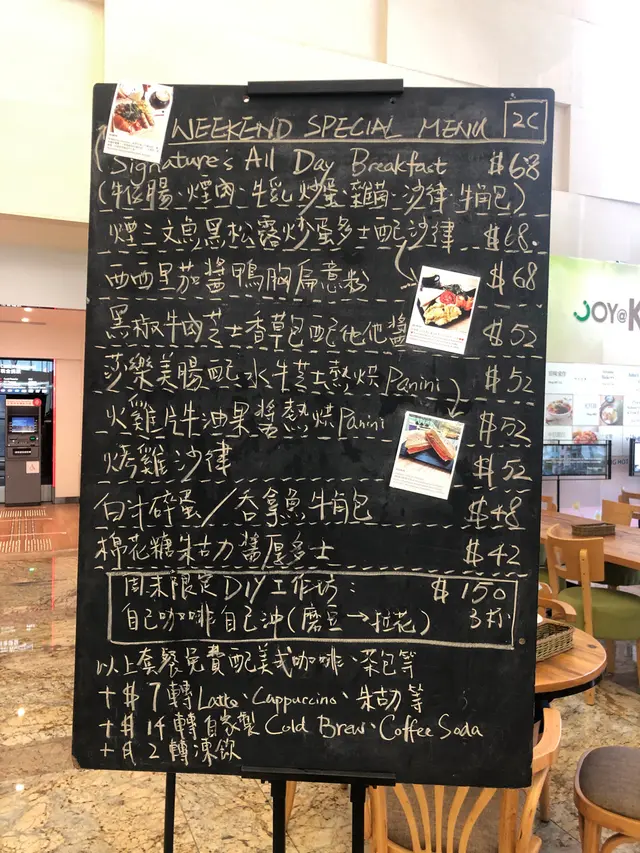 WEEKEND SPECIAL MENU 2C
Signature's All Day Breakfast $68
(牛仔腸、煙肉、牛乳炒蛋、雜菌、沙律、牛角包)
煙三文魚黑松露炒蛋多士配沙律 $68
西西里茄醬鴨胸扁意粉 $68
黑椒牛肉芝士香草包配他他醬 $52
莎樂美腸配水牛芝士熱烘Panini $52
火雞片牛油果醬熱烘Panini $52
烤雞沙律 $52
白汁碎蛋/吞拿魚牛角包 $48
棉花糖朱古力醬厚多士 $42
周末限定DIY工作坊: $150
自己咖啡自己沖(磨豆→拉花) 3杯
以上套餐免費配美式咖啡、茶包等
+$7轉Latte、Cappuccino、朱古力等
+$14轉自家製Cold Brew、Coffee Soda
+$2轉凍飲
JOY@K